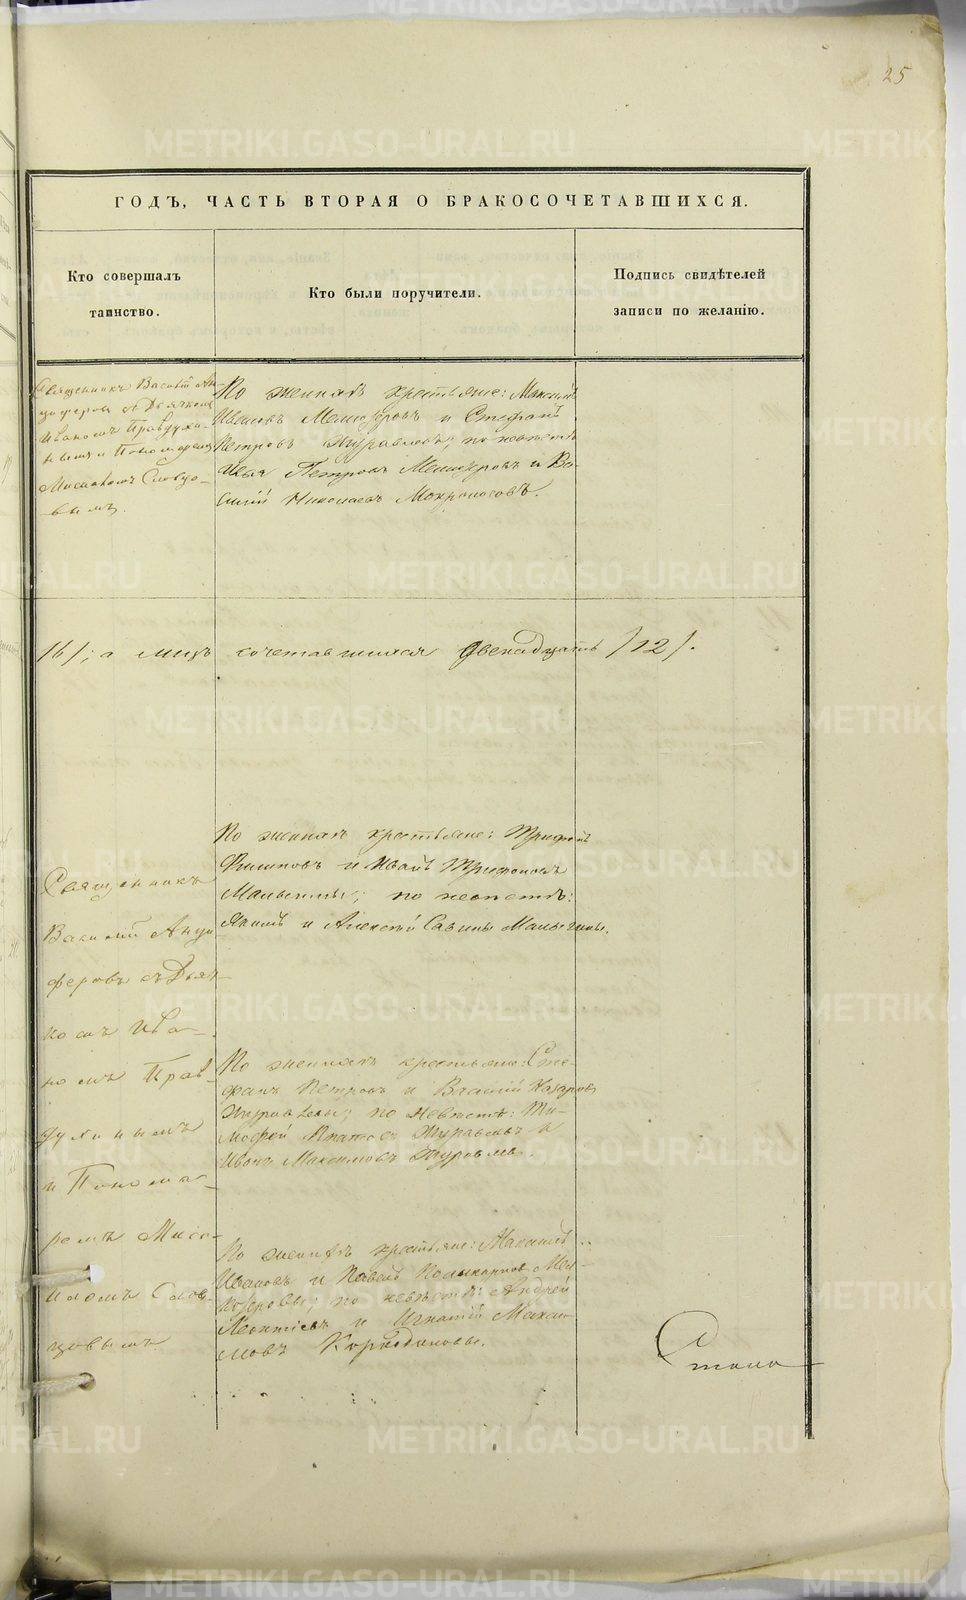 25
ГОДЪ, ЧАСТЬ ВТОРАЯ О БРАКОСОЧЕТАВШИХСЯ.
Кто совершалъ
таинство.
Кто были поручители.
Подпись свидѣтелей
записи по желанію.
Священникъ Василій Ан-
циферовъ съ Дьячкомъ
Иваномъ Правдухи-
нымъ и Пономаремъ
Мисаиломъ Словцо-
вымъ.
По женихѣ крестьяне: Максимъ
Ивановъ и Стефанъ
Петровъ Журавлевъ; по невѣстѣ
Илья Петровъ и Ва-
силій Николаевъ Мокроносовъ.
/6/; а лицъ сочетавшихся двенадцать /12/.
Священникъ
Василій Анци-
феровъ съ Дьяч-
комъ Ива-
номъ Прав-
духинымъ
и Понома-
ремъ Миса-
иломъ Слов-
цовымъ
По женихѣ крестьяне: Трифонъ
и Иванъ Трифоновъ
Малыгины; по невѣстѣ:
Якимъ и Алексѣй Савины Малыгины.
По женихѣ крестьяне: Сте-
фанъ Петровъ и Василій Назаровъ
Журавлевы; по невѣстѣ: Ти-
мофей Журавлевъ и
Иванъ Максимовъ Журавлевъ.
По женихѣ крестьяне: Максимъ
Ивановъ и Павелъ Поликарповъ
по невѣстѣ: Андрей
Леонтіевъ и Игнатій Макси-
мовъ Коркодиновы.
METRIKI.GASO-URAL.RU